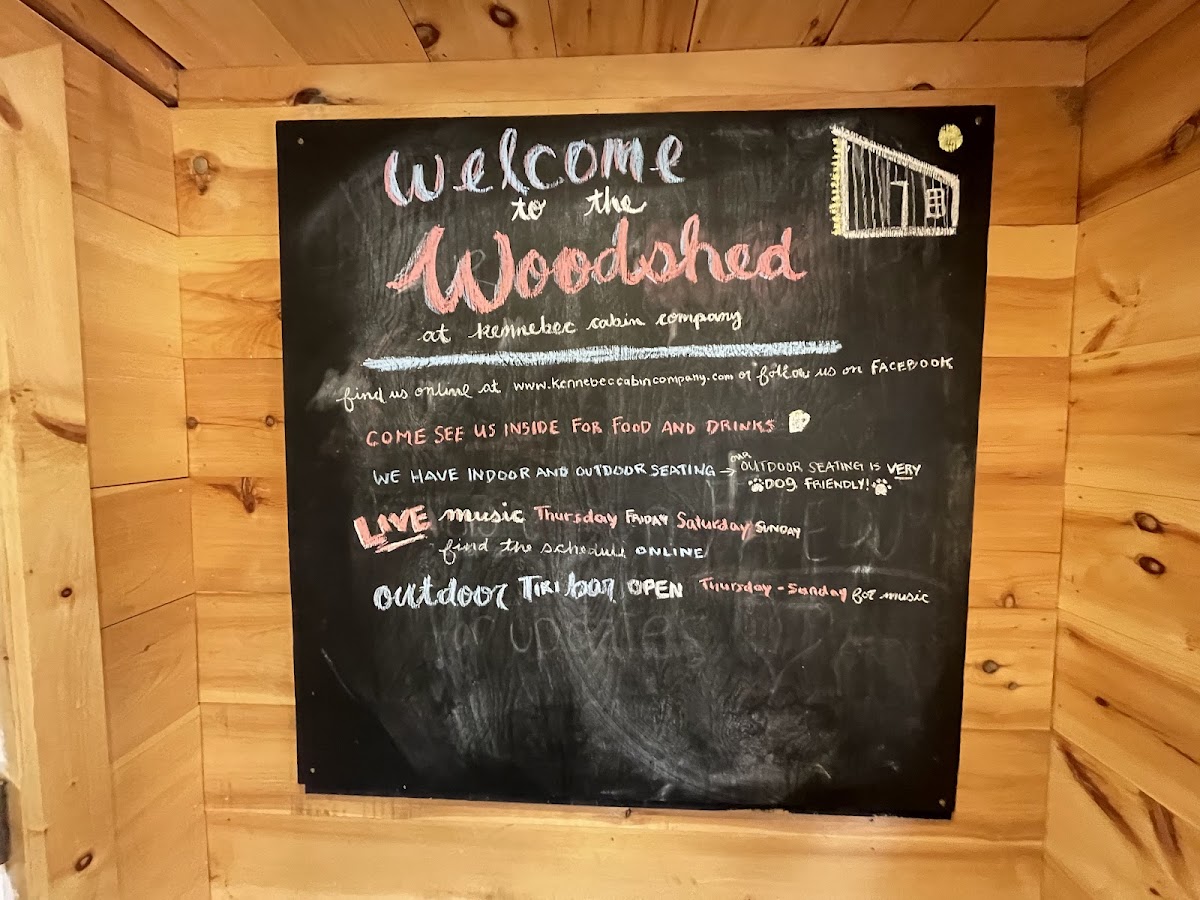 welcome
to the
Woodshed
at kennebec cabin company
find us online at www.kennebeccabincompany.com or follow us on FACEBOOK
COME SEE US INSIDE FOR FOOD AND DRINKS
WE HAVE INDOOR AND OUTDOOR SEATING → our OUTDOOR SEATING IS VERY
DOG FRIENDLY!
LIVE music Thursday FRIDAY Saturday SUNDAY
find the schedule ONLINE
outdoor TIKI bar OPEN Thursday - Sunday for music
for updates